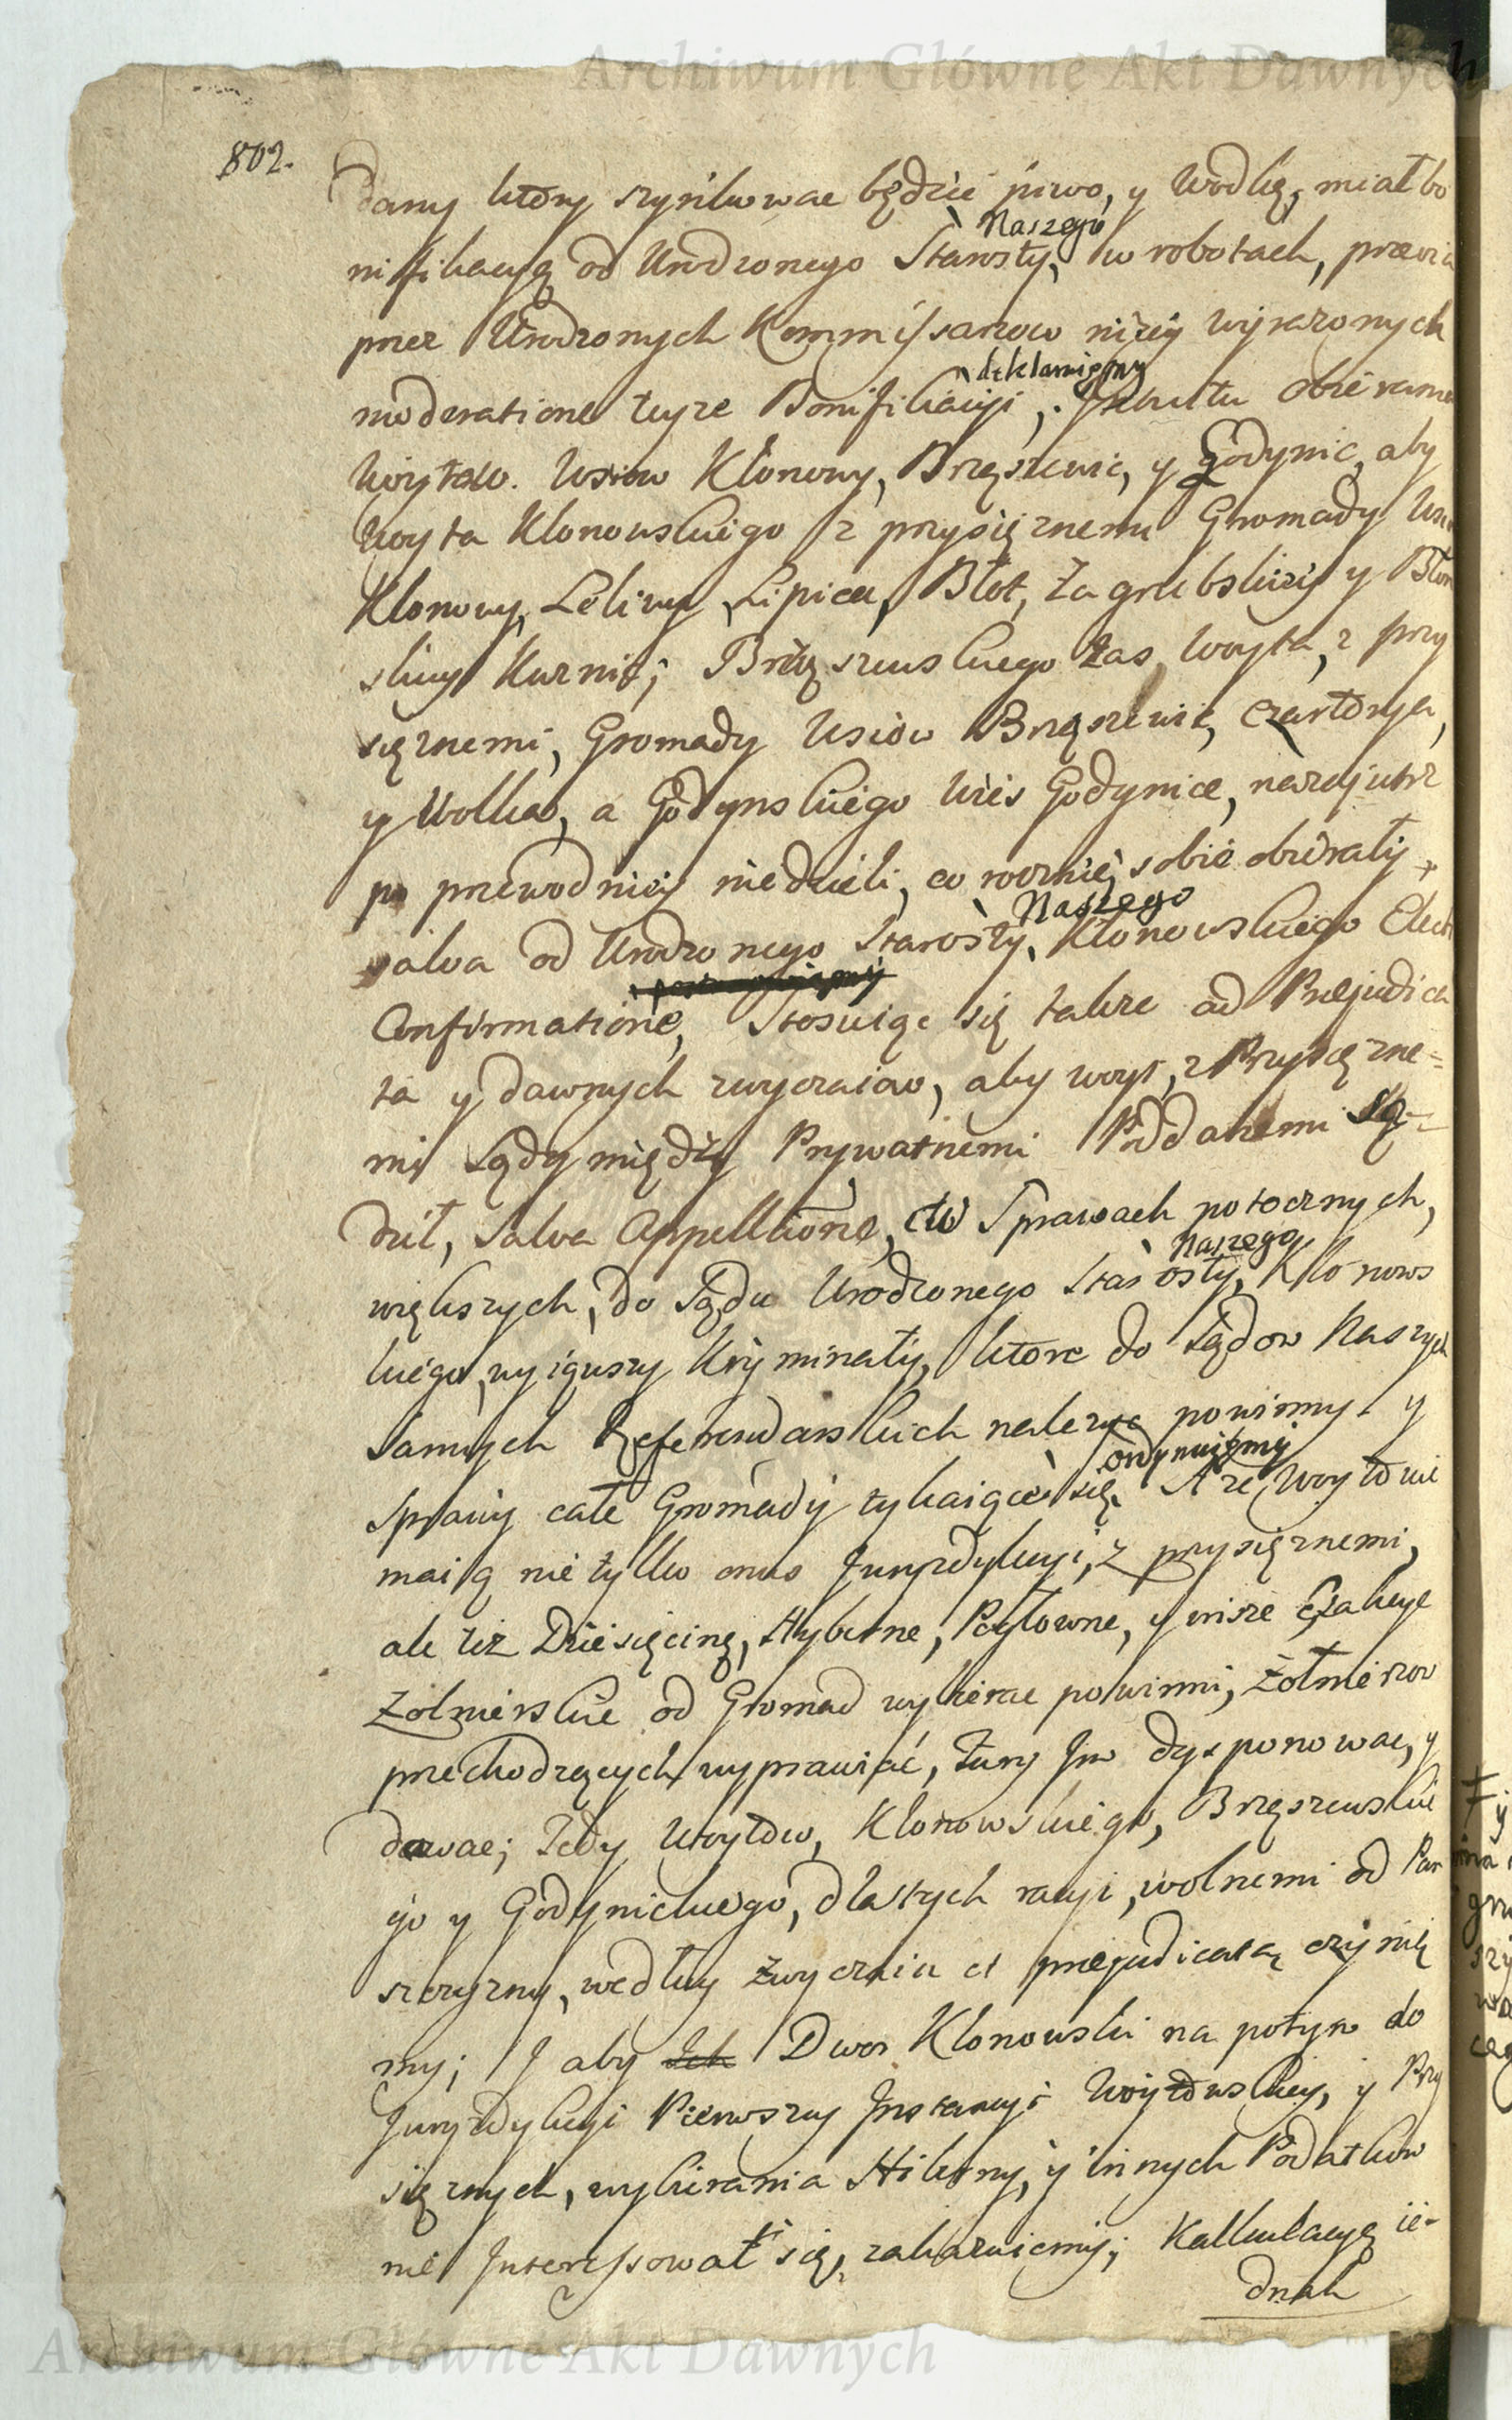 Archiwum Główne Akt Dawnych
802.
dany ktory szynkowac będzie piwo, y wodkę, miał bo
Naszego
nifikacyą od Urodzonego Starosty, w robotach, prævia
przez Urodzonych Kommissarzow niżey wyrazonych
deklaruiemy
moderatione teyze Bonifikacyi, . Względem obierania
Woytow. Wsiow Klonowy, Brzęszewic, y Godynic, aby
woyta Klonowskiego z przysięznemi Gromady Wsi
Klonowy, Leliwy, Lipicz, Błot, Zagrubskiey y Błon
skiey Kuznic; Brzęszewskiego zas Woyta, z przy
sięznemi, Gromady Wsiow Brzęszewic, Czartorya,
y Wolka, a Godynskiego Wies Godynice, nazajutrz
po przewodniey niedzieli, co rocznie sobie obierały
Naszego
salva od Urodzonego Starosty, Klonowskiego Elect
Confirmatione, Stosuiąc się takze ad Præjudica
ta y dawnych zwyczaiow, aby woyt, z Przysięzne=
mi Sądy między Prywatnemi Poddanemi są=
dził, Salva Appellatione, w Sprawach potocznych,
Naszego
większych, do Sądu Urodzonego Starosty, Klonows
kiego, wyiąwszy Kryminały, ktore do Sądow Naszych
Samych Referendarskich nalezyc powinny y
ordynuiemy
Sprawy całe Gromady tykaiące się. A ze Woytowie
maią nie tylko onus Juryzdykcyi, z przysięznemi,
ale tez Dziesięcinę, Hyberne, Pogłowne, y insze Exakcye
Zolnierskie od Gromad wybierac powinni, Zołnierzow
przechodzących wyprawiać, Fury Im dysponowac, y
dawac; Tedy Woytow, Klonowskiego, Brzęszewskie
go y Godynickiego, dla tych racyi, wolnemi od Pan
szczyzny, według zwyczaiu et præjudicata, czynię
my; I aby Dwor Klonowski na potym do
Juryzdykcyi Pierwszey Instancyi Woytowskiey, y Przy
sięznych, wybierania Hiberny, y innych Podatkow
nie Interessował się, zakazuiemy; Kalkulacyę ie-
dnak
Archiwum Główne Akt Dawnych